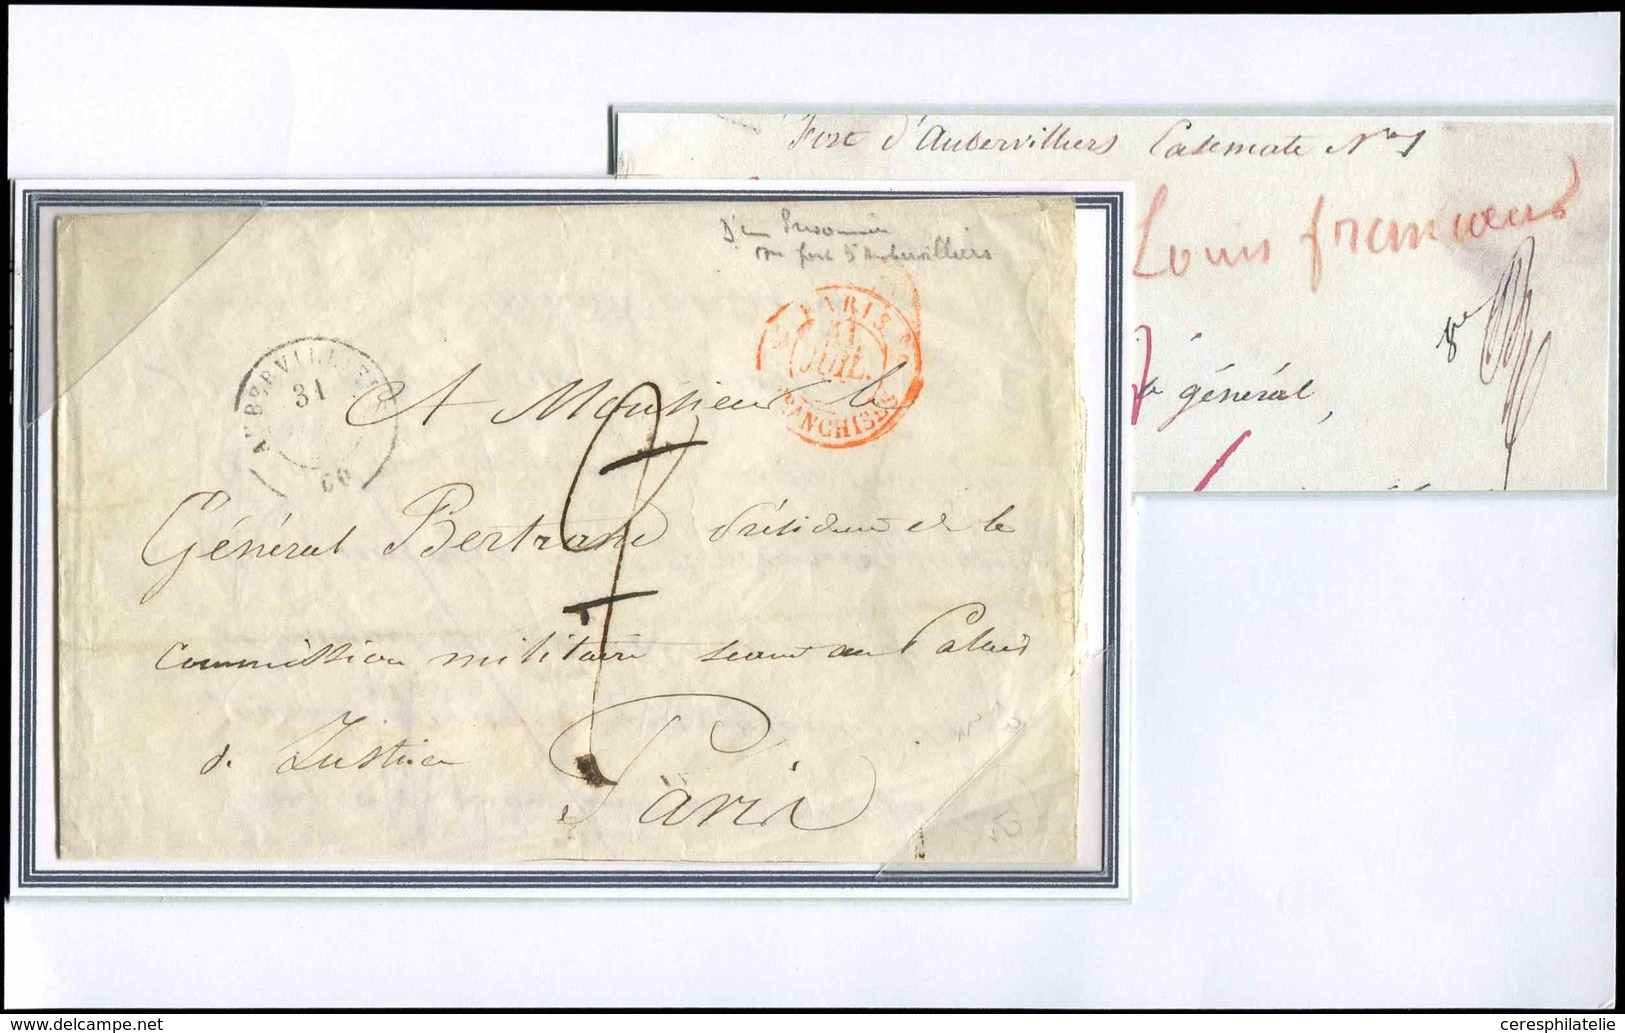 Fort d'Aubervilliers Casemate N° 1
Louis
général,
D'un Prisonnier
au fort d'Aubervilliers
PARIS
31
JUIL.
FRANCHISES
AUBERVILLIERS
31
60
A Monsieur le
Général Bertrand Président de la
commission militaire séant au Palais
de Justice
Paris
ceresphilatelie